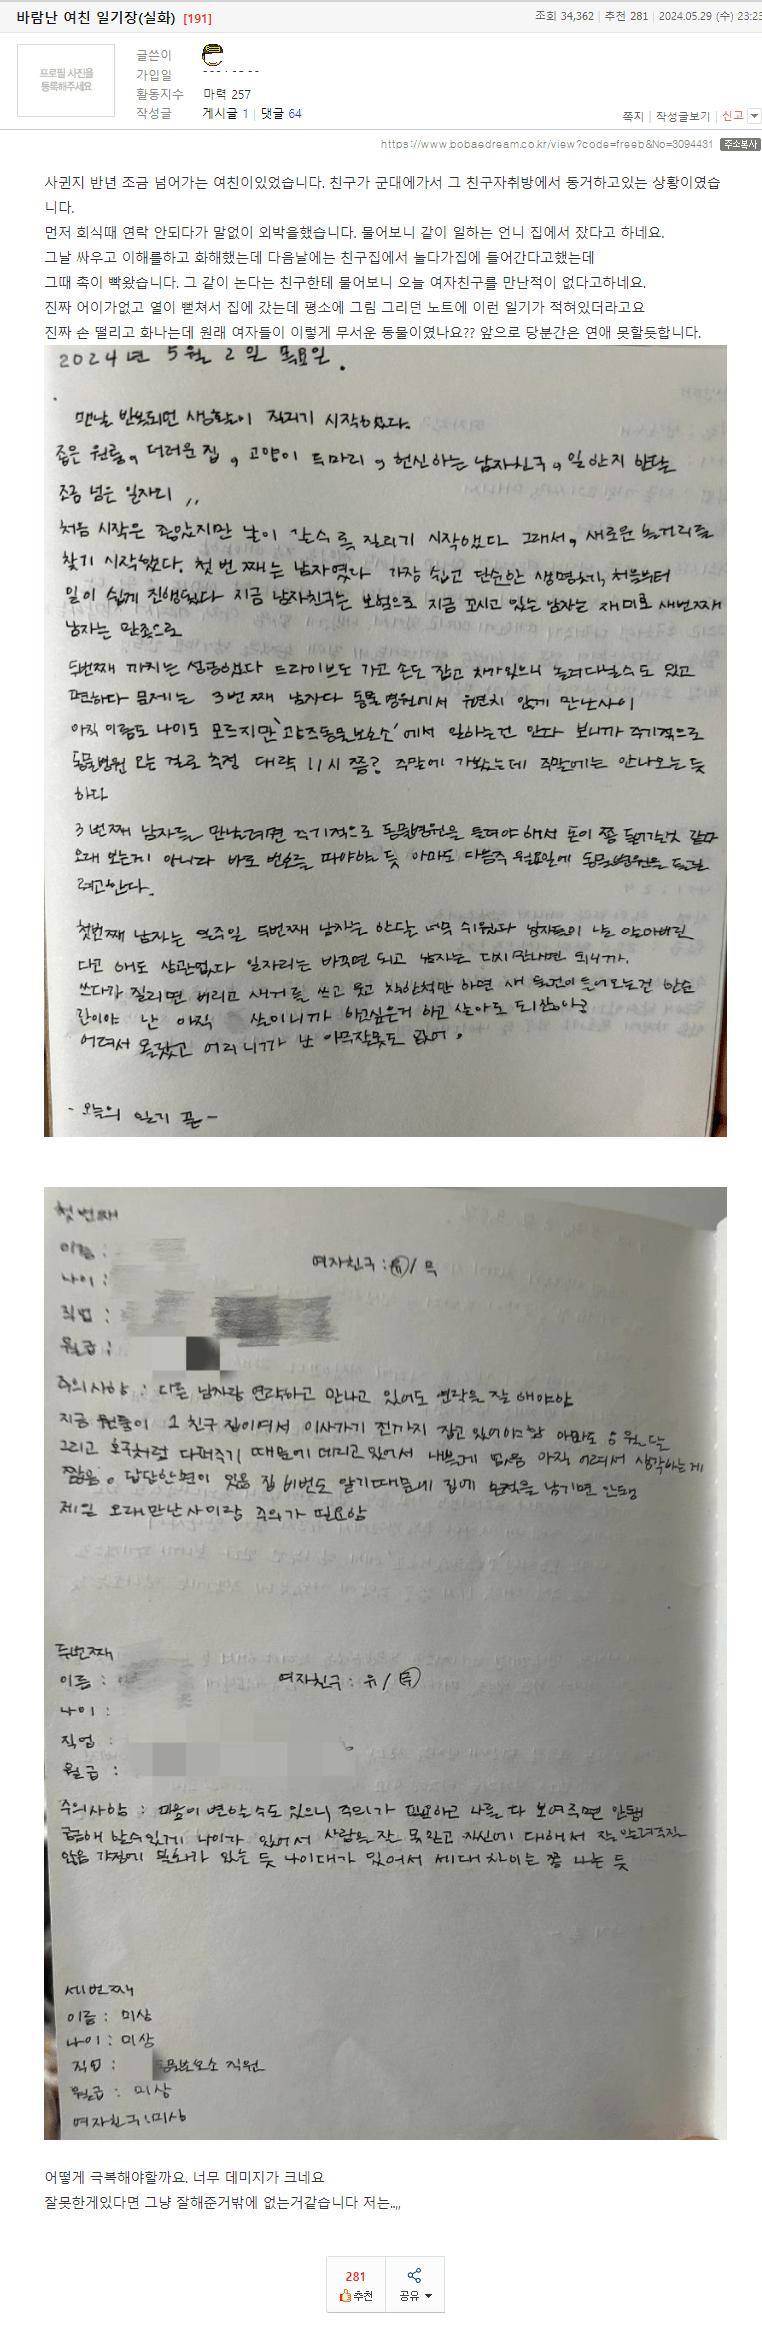 바람난 여친 일기장(실화) [191]
조회 34,362 | 추천 281 | 2024.05.29 (수) 23:23
프로필 사진을
등록해주세요
글쓴이
가입일
활동지수 마력 257
작성글 게시글 1 | 댓글 64
쪽지 | 작성글보기 | 신고
https://www.bobaedream.co.kr/view?code=freeb&No=3094431 주소복사
사귄지 반년 조금 넘어가는 여친이있었습니다. 친구가 군대에가서 그 친구자취방에서 동거하고있는 상황이였습
니다.
먼저 회식때 연락 안되다가 말없이 외박을했습니다. 물어보니 같이 일하는 언니 집에서 잤다고 하네요.
그날 싸우고 이해를하고 화해했는데 다음날에는 친구집에서 놀다가집에 들어간다고했는데
그때 촉이 빡왔습니다. 그 같이 논다는 친구한테 물어보니 오늘 여자친구를 만난적이 없다고하네요.
진짜 어이가없고 열이 뻗쳐서 집에 갔는데 평소에 그림 그리던 노트에 이런 일기가 적혀있더라고요
진짜 손 떨리고 화나는데 원래 여자들이 이렇게 무서운 동물이였나요?? 앞으로 당분간은 연애 못할듯합니다.
2024년 5월 2일 목요일.
맨날 반복되던 생활이 질리기 시작하였다.
좁은 원룸, 더러운 집, 고양이 두마리, 헌신하는 남자친구, 일한지 한달
조금 넘은 일자리,,
처음 시작은 좋았지만 날이 갈수록 질리기 시작했다 그래서, 새로운 놀거리를
찾기 시작했다. 첫 번째는 남자였다 가장 쉽고 단순한 생명체, 처음부터
일이 쉽게 진행됐다 지금 남자친구는 보험으로 지금 꼬시고 있는 남자는 재미로 세번째
남자는 만족으로
두번째 까지는 성공하였다 드라이브도 가고 손도 잡고 차가있으니 놀러다닐수도 있고
편하다 문제는 3번째 남자다 동물병원에서 우연치 않게 만난사이
아직 이름도 나이도 모르지만 '광주동물보호소'에서 일하는건 안다 보니까 주기적으로
동물병원 오는 걸로 추정 대략 11시 쯤? 주말에 가봤는데 주말에는 안나오는듯
하다
3번째 남자를 만나려면 주기적으로 동물병원을 들려야 해서 돈이 쫌 들어가는것 같다
오래 보는게 아니라 바로 번호를 따야할 듯 아마도 다음주 월요일에 동물병원을 들릴
려고한다.
첫번째 남자는 일주일 두번째 남자는 한달 너무 쉬웠다 남자들이 나를 알아버린
다고 해도 상관없다 일자리는 바꾸면 되고 남자는 다시 만나면 되니까.
쓰다가 질리면 버리고 새거를 쓰고 웃고 착한척만 하면 새 물건이 들어오는건 한순
간이야 난 아직 살이니까 하고싶은거 하고 살아도 되잖아?
어려서 몰랐고 어리니까 난 아무잘못도 없어.
- 오늘의 일기 끝 -
첫번째
이름 :
나이 :
여자친구 : 유 / 무
직업 :
월급 :
주의사항 : 다른 남자랑 연락하고 만나고 있어도 연락을 잘 해야함
지금 원룸이 1 친구 집이여서 이사가기 전까지 잡고있어야함 아마도 6월달
그리고 호구처럼 다퍼주기 때문에 데리고있어서 나쁠게 없음 아직 어려서 생각하는게
짧음. 답답한면이 있음 집 비번도 알기때문에 집에 흔적을 남기면 안됨
제일 오래만난사이랑 주의가 필요함
두번째
이름 :
여자친구 : 유 / 무
나이 :
직업 :
월급 :
주의사항 : 마음이 변할수도 있으니 주의가 필요하고 나를 다 보여주면 안됨
나이가 있어서 사람을 잘 못믿고 자신에 대해서 잘 안알려주질
않음 가정에 불화가 있는 듯 나이대가 있어서 세대 차이는 쫌 나는 듯
세번째
이름 : 미상
나이 : 미상
직업 : 동물보호소 직원
월급 : 미상
여자친구 : 미상
어떻게 극복해야할까요. 너무 데미지가 크네요
잘못한게있다면 그냥 잘해준거밖에 없는거같습니다 저는..,,
281
추천
공유